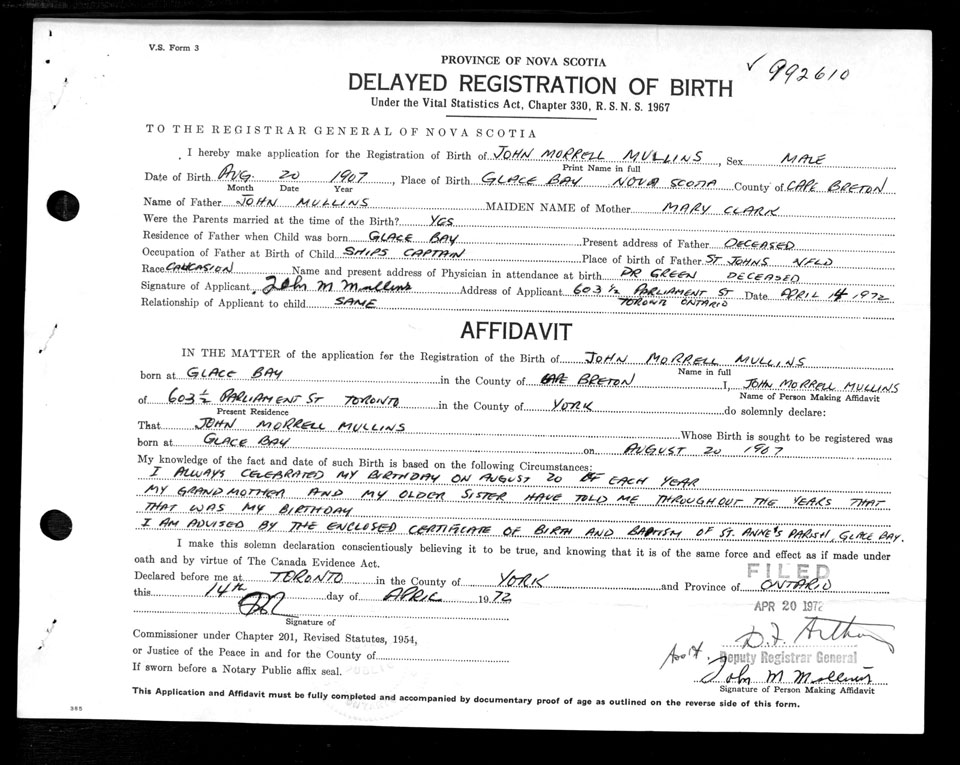 V.S. Form 3
PROVINCE OF NOVA SCOTIA
✓ 992610
DELAYED REGISTRATION OF BIRTH
Under the Vital Statistics Act, Chapter 330, R.S.N.S. 1967
TO THE REGISTRAR GENERAL OF NOVA SCOTIA
I hereby make application for the Registration of Birth of JOHN MORRELL MULLINS, Sex MALE
Print Name in full
Date of Birth AUG. 20 1907, Place of Birth GLACE BAY NOVA SCOTIA County of CAPE BRETON
Month Date Year
Name of Father JOHN MULLINS MAIDEN NAME of Mother MARY CLARK
Were the Parents married at the time of the Birth? YES
Residence of Father when Child was born GLACE BAY Present address of Father DECEASED
Occupation of Father at Birth of Child SHIPS CAPTAIN Place of birth of Father ST JOHNS NFLD
Race CAUCASION Name and present address of Physician in attendance at birth DR GREEN DECEASED
Signature of Applicant John M Mullins Address of Applicant 603 1/2 PARLIAMENT ST Date APRIL 14 1972
Relationship of Applicant to child SAME TORONTO ONTARIO
AFFIDAVIT
IN THE MATTER of the application for the Registration of the Birth of JOHN MORRELL MULLINS
Name in full
born at GLACE BAY in the County of CAPE BRETON I, JOHN MORRELL MULLINS
Name of Person Making Affidavit
of 603 1/2 PARLIAMENT ST TORONTO in the County of YORK do solemnly declare:
Present Residence
That JOHN MORRELL MULLINS Whose Birth is sought to be registered was
born at GLACE BAY on AUGUST 20 1907
My knowledge of the fact and date of such Birth is based on the following Circumstances:
I ALWAYS CELEBRATED MY BIRTHDAY ON AUGUST 20 OF EACH YEAR
MY GRANDMOTHER AND MY OLDER SISTER HAVE TOLD ME THROUGHOUT THE YEARS THAT
THAT WAS MY BIRTHDAY
I AM ADVISED BY THE ENCLOSED CERTIFICATE OF BIRTH AND BAPTISM OF ST. ANNE'S PARISH, GLACE BAY.
I make this solemn declaration conscientiously believing it to be true, and knowing that it is of the same force and effect as if made under
oath and by virtue of The Canada Evidence Act.
FILED
Declared before me at TORONTO in the County of YORK and Province of ONTARIO
this 14th day of APRIL 1972
APR 20 1972
Signature of
D.F. Arthur
Commissioner under Chapter 201, Revised Statutes, 1954,
or Justice of the Peace in and for the County of
Ass't. Deputy Registrar General
If sworn before a Notary Public affix seal.
John M Mullins
Signature of Person Making Affidavit
This Application and Affidavit must be fully completed and accompanied by documentary proof of age as outlined on the reverse side of this form.